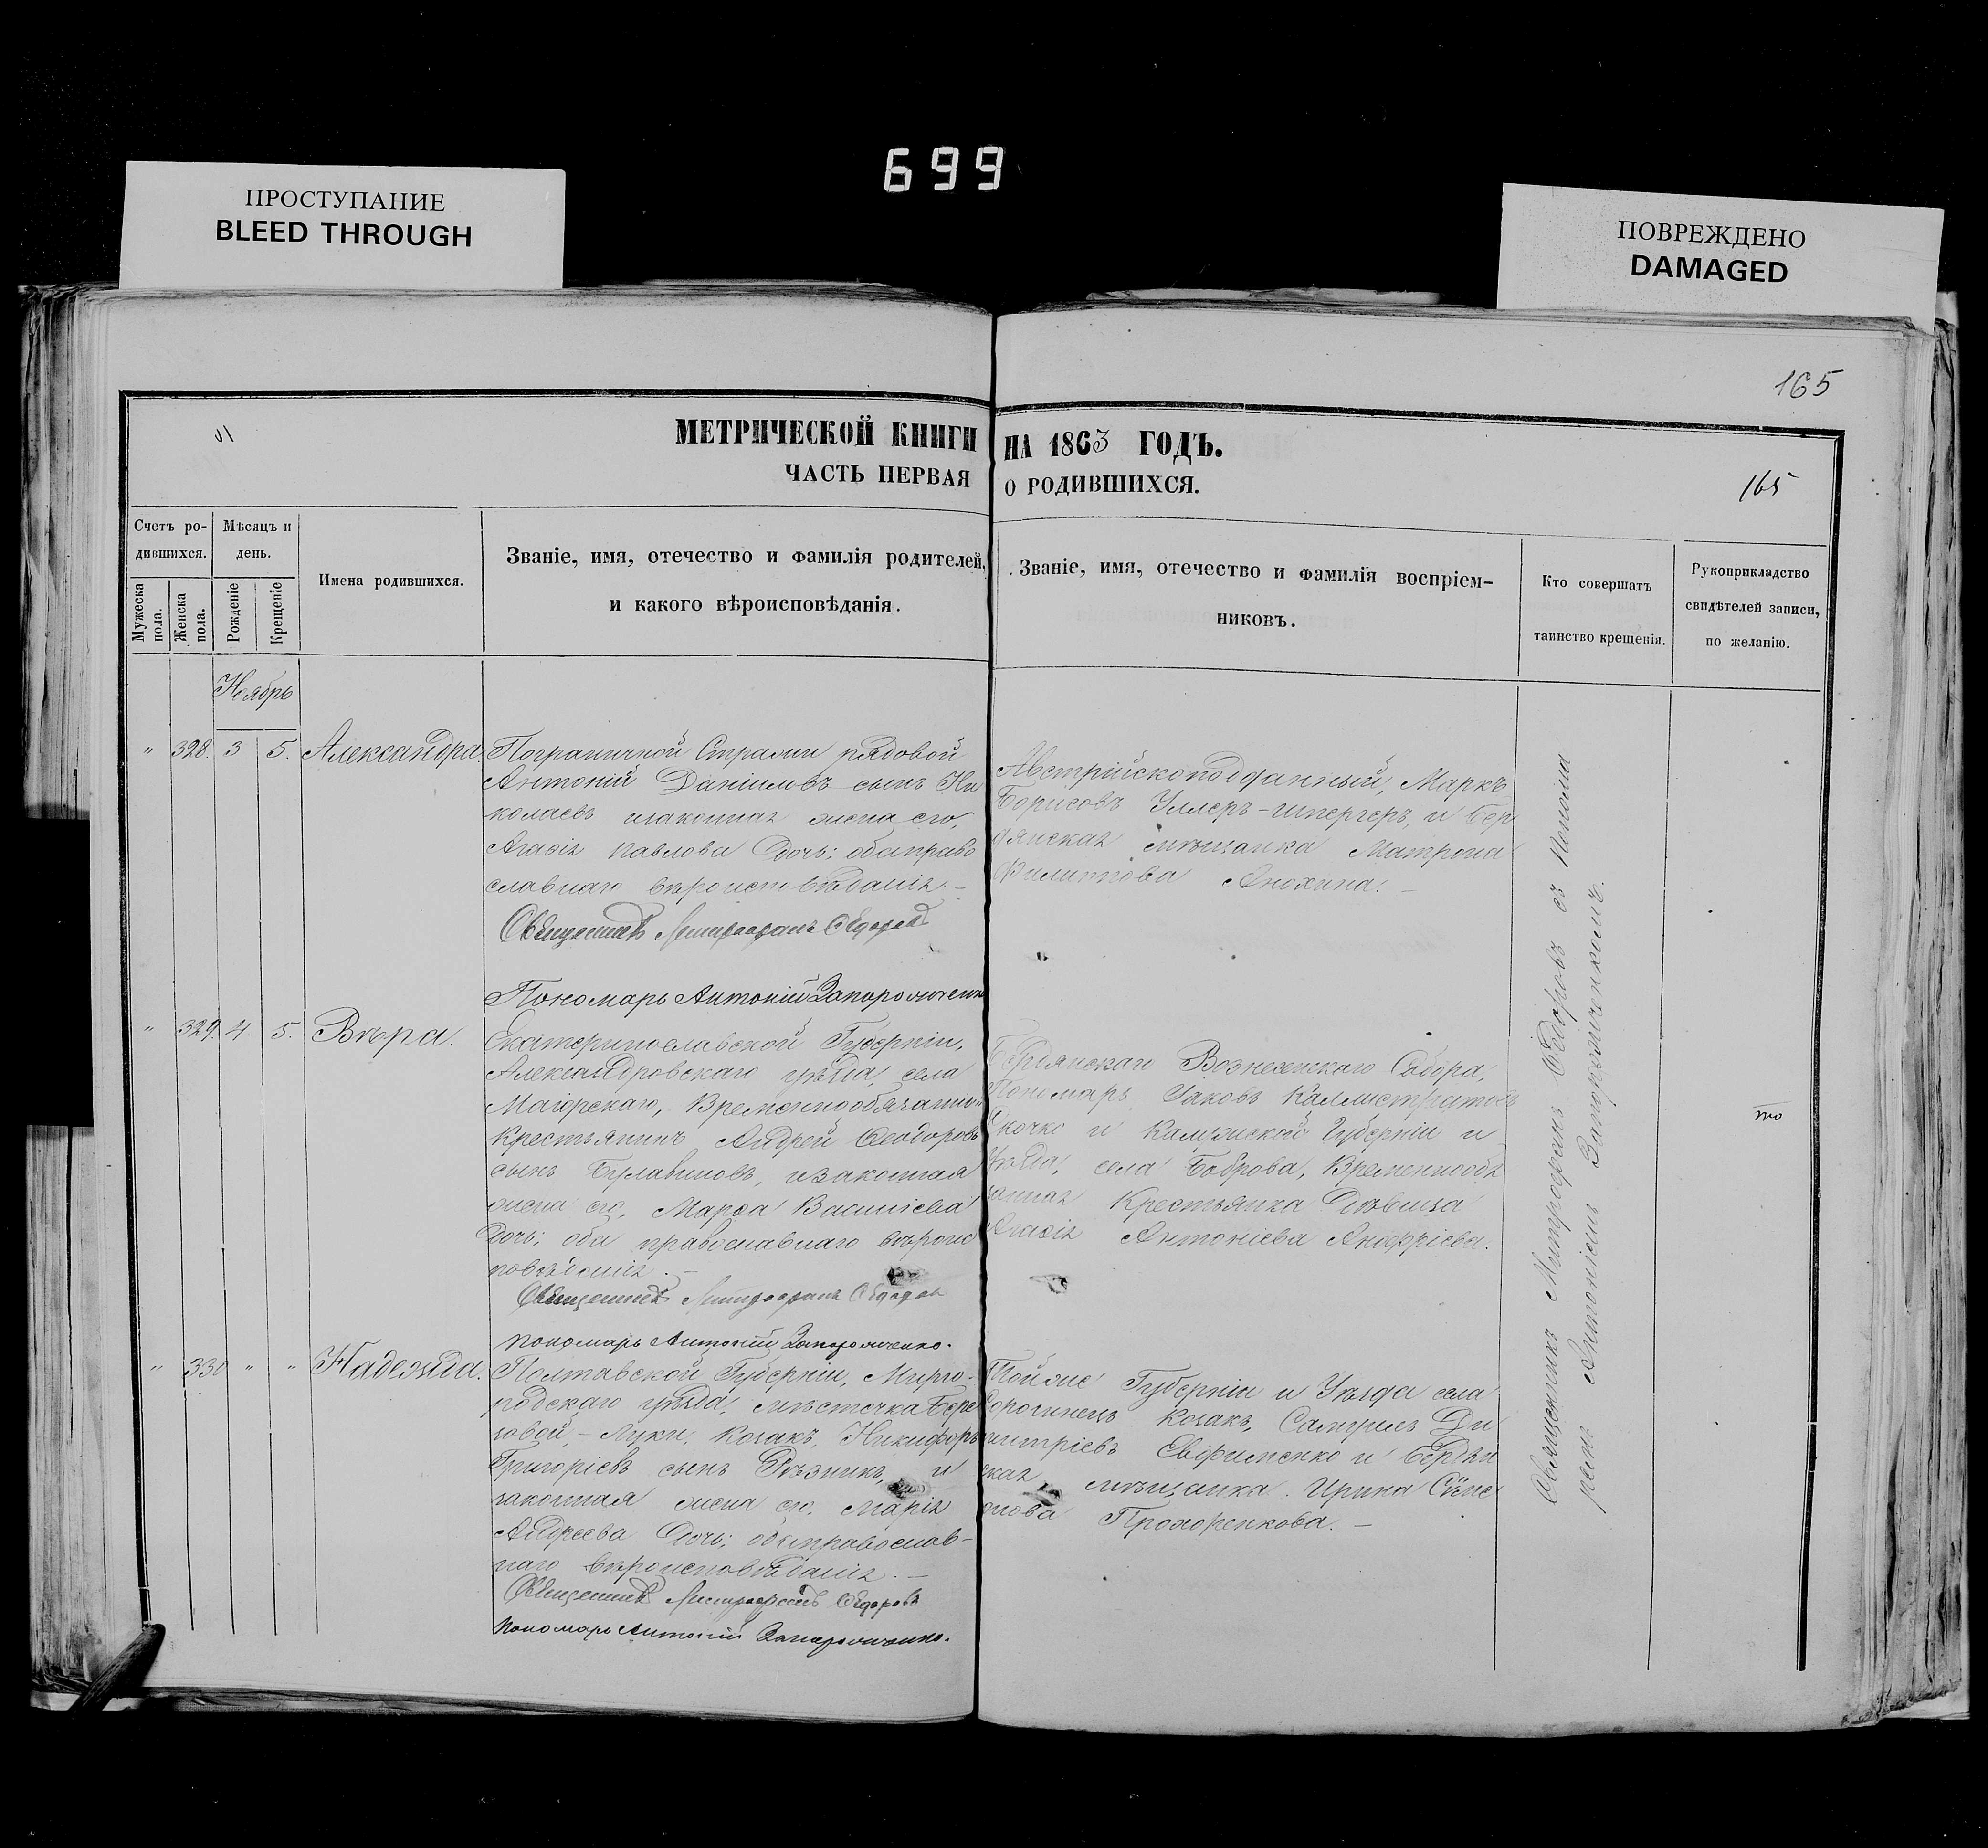 699
ПРОСТУПАНИЕ
BLEED THROUGH
ПОВРЕЖДЕНО
DAMAGED
165
МЕТРИЧЕСКОЙ КНИГИ НА 1863 ГОДЪ.
ЧАСТЬ ПЕРВАЯ О РОДИВШИХСЯ.
165
Счетъ ро-
дившихся.
Мужеска пола.
Женска пола.
Мѣсяцъ и
день.
Рожденіе
Крещеніе
Имена родившихся.
Званіе, имя, отечество и фамилія родителей,
и какого вѣроисповѣданія.
Званіе, имя, отечество и фамилія воспріем-
никовъ.
Кто совершатъ
таинство крещенія.
Рукоприкладство
свидѣтелей записи,
по желанію.
Ноябрь
" 328. 3 5. Александра.
Пограничной Стражи рядовой
Антоній Даніиловъ сынъ Ни
колаевъ изаконная жена его,
Агафія Павлова дочь; обаправо
славнаго вѣроисповѣданія. –
Священникъ Митрофанъ Ѳедоровъ
Пономарь Антоній Запорожченко
Австрійскоподданный, Маркъ
Борисовъ Уллеръ-шпергеръ, и Бер
дянская мѣщанка Матрона
Филиппова Анохина. –
" 329. 4. 5. Вѣра.
Екатеринославской Губерніи,
Александровскаго уѣзда, села
Маіорскаго, Временнообязанный
Крестьянинъ Андрей Ѳеодоровъ
сынъ Булавиновъ, изаконная
жена его, Марѳа Василіева
дочь; оба православнаго вѣроис
повѣданія. –
Священникъ Митрофанъ Ѳедоровъ
Пономарь Антоній Запорожченко.
Бердянскаго Вознесенскаго Собора,
Пономарь Іаковъ Каллистратовъ
и Калужской Губерніи и
Уѣзда, села Боброва, Временнообя
занная Крестьянка Дѣвица
Агафія Антоніева Анофріева.
" 330 " " Надежда.
Полтавской Губерніи, Мирго-
родскаго уѣзда, мѣстечка Бере
зовой – Луки, Козакъ, Никифоръ
Григоріевъ сынъ Рѣзникъ, и
законная жена его, Марія
Андреева дочь; обаправослав-
наго вѣроисповѣданія. –
Священникъ Митрофанъ Ѳедоровъ
Пономарь Антоній Запорожченко.
Тойже Губерніи и Уѣзда села
Сорочинецъ Козакъ, Самуилъ Ди
митріевъ Евфименко и Бердян
ская мѣщанка Ирина
Прохоренкова. –
Священникъ Митрофанъ Ѳедоровъ съ Понома
ремъ Антоніемъ Запорожченкомъ.